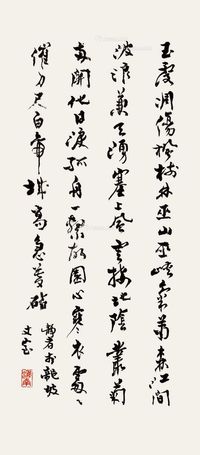 玉露凋傷楓樹林巫山巫峽氣蕭森江間
波浪兼天湧塞上風雲接地陰叢菊
兩開他日淚孤舟一繫故園心寒衣處々
催刀尺白帝城高急暮砧